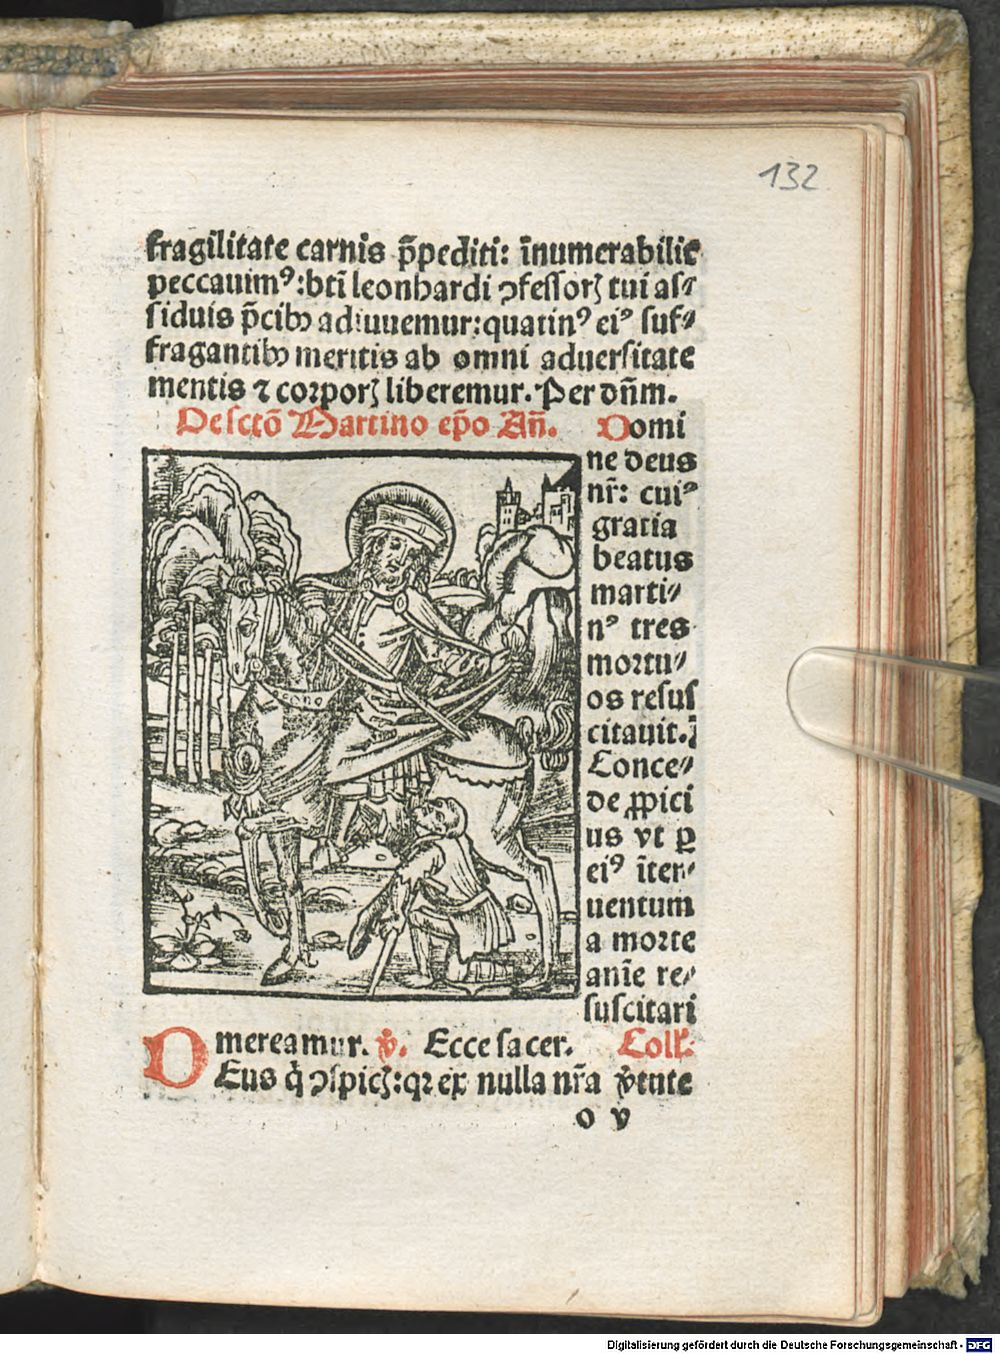 132
fragilitate carnis p̄pediti: īnumerabiliẽ
peccauimꝰ:btī leonhardi ꝯfessorꝭ tui as⸗
siduis p̄cibꝫ adiuuemur:quatinꝰ eiꝰ suf⸗
fragantibꝫ meritis ab omni aduersitate
mentis ⁊ corporꝭ liberemur. Per dn̄m.
De sctō Martino ep̄o An̄. Domi
ne deus
nr̄: cuiꝰ
gratia
beatus
marti⸗
nꝰ tres
mortu⸗
os resus
citauit.
Conce⸗
de ꝓpici
us vt ꝑ
eiꝰ īter⸗
uentum
a morte
anīe re⸗
suscitari
mereamur. ꝟ. Ecce sacer. Coll'.
DEus q̇ ꝯspicꝭ:qꝛ ex nulla nr̄a ꝟtute
o v
Digitalisierung gefördert durch die Deutsche Forschungsgemeinschaft - DFG